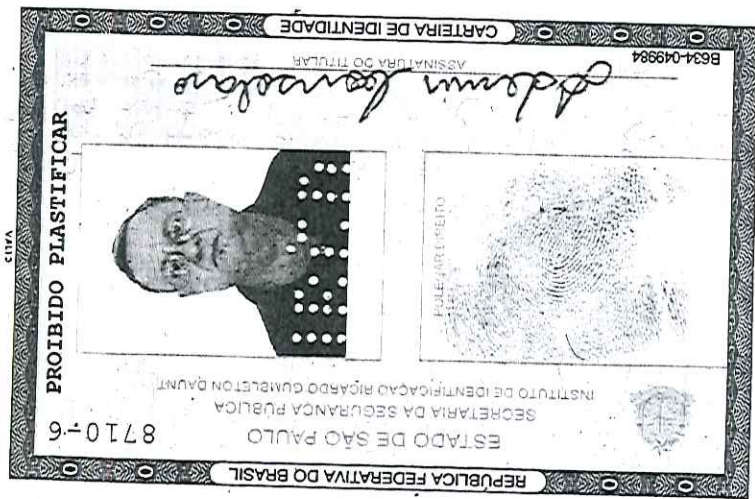 REPÚBLICA FEDERATIVA DO BRASIL
ESTADO DE SÃO PAULO
SECRETARIA DA SEGURANÇA PÚBLICA
INSTITUTO DE IDENTIFICAÇÃO RICARDO GUMBLETON DAUNT
8710-6
PROIBIDO PLASTIFICAR
POLEGAR DIREITO
Ademir Consolaro
ASSINATURA DO TITULAR
B634-049984
CARTEIRA DE IDENTIDADE